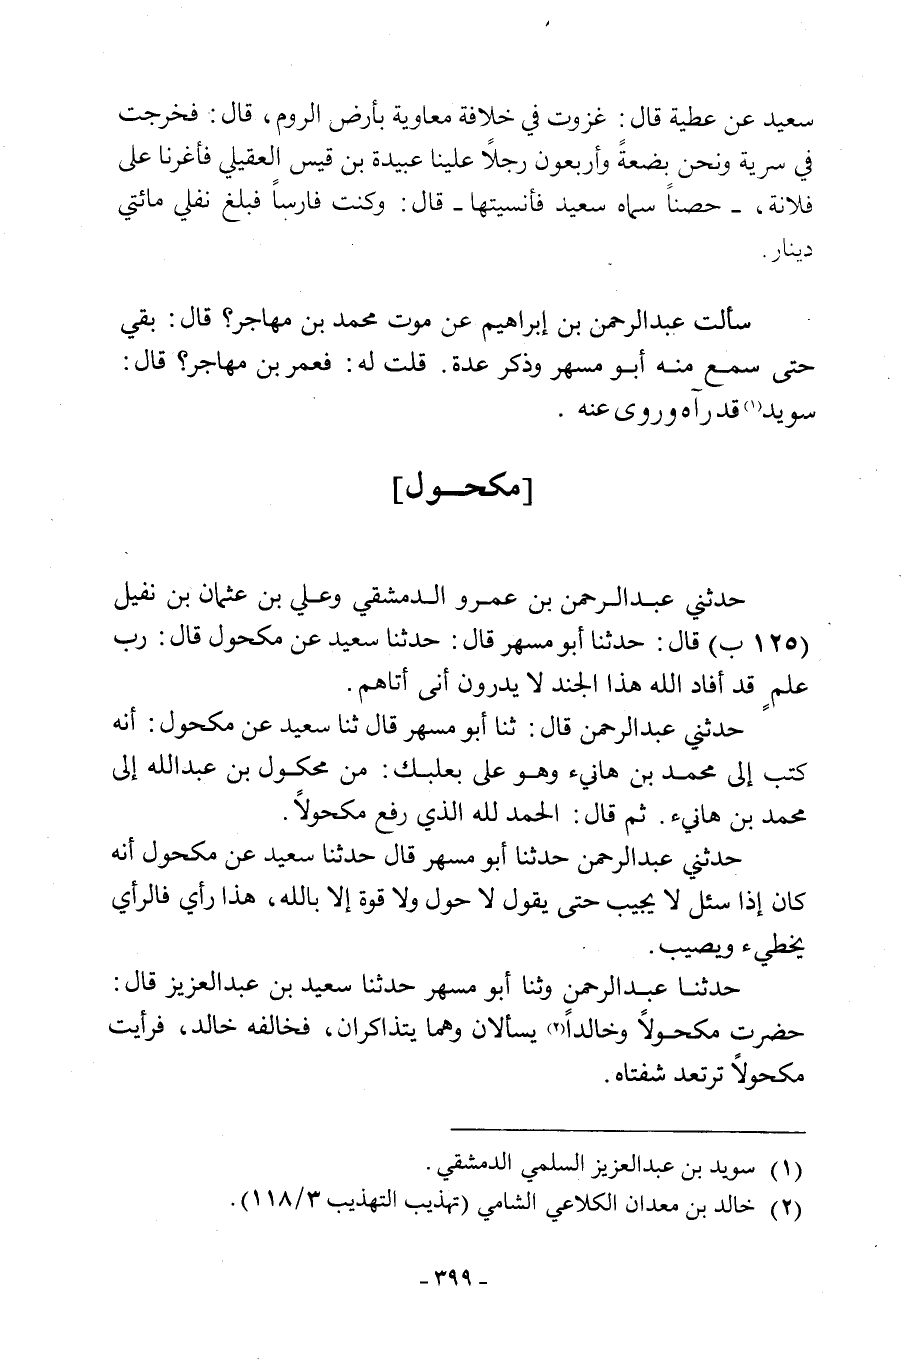 سعيد عن عطية قال: غزوت في خلافة معاوية بأرض الروم، قال: فخرجت
في سرية ونحن بضعةً وأربعون رجلاً علينا عبيدة بن قيس العقيلي فأغرنا على
فلانة، ـ حصناً سماه سعيد فأنسيتها ـ قال: وكنت فارساً فبلغ نفلي مائتي
دينار.
سألت عبدالرحمن بن إبراهيم عن موت محمد بن مهاجر؟ قال: بقي
حتى سمع منه أبو مسهر وذكر عدة. قلت له: فعمر بن مهاجر؟ قال:
سويد(١) قد رآه وروى عنه .
[مكحـول]
حدثني عبدالرحمن بن عمرو الدمشقي وعلي بن عثمان بن نفيل
(١٢٥ ب) قال: حدثنا أبو مسهر قال: حدثنا سعيد عن مكحول قال: رب
علمٍ قد أفاد الله هذا الجند لا يدرون أنى أتاهم.
حدثني عبدالرحمن قال: ثنا أبو مسهر قال ثنا سعيد عن مكحول: أنه
كتب إلى محمد بن هانيء وهو على بعلبك: من محكول بن عبدالله إلى
محمد بن هانيء. ثم قال: الحمد لله الذي رفع مكحولاً.
حدثني عبدالرحمن حدثنا أبو مسهر قال حدثنا سعيد عن مكحول أنه
كان إذا سئل لا يجيب حتى يقول لا حول ولا قوة إلا بالله، هذا رأي فالرأي
يخطيء ويصيب.
حدثنا عبدالرحمن وثنا أبو مسهر حدثنا سعيد بن عبدالعزيز قال:
حضرت مكحولاً وخالداً(٢) يسألان وهما يتذاكران، فخالفه خالد، فرأيت
مكحولاً ترتعد شفتاه.
(١) سويد بن عبدالعزيز السلمي الدمشقي.
(٢) خالد بن معدان الكلاعي الشامي (تهذيب التهذيب ١١٨/٣).
ـ ٣٩٩ ـ